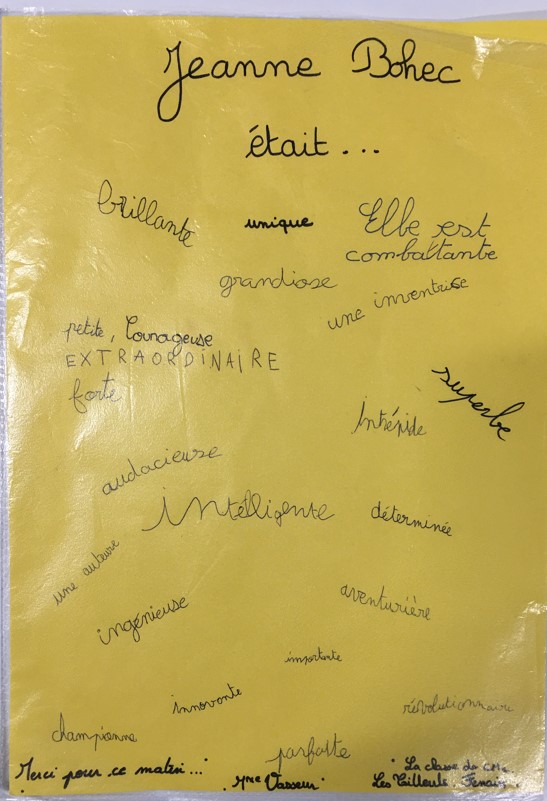 Jeanne Bohec
était...
brillante
unique
Elle est
combattante
grandiose
une inventrice
petite, Courageuse
EXTRAORDINAIRE
forte
superbe
Intrépide
audacieuse
intelligente
déterminée
une auteure
aventurière
ingénieuse
importante
innovante
révolutionnaire
championne
parfaite
Merci pour ce matin..."
Mme Vasseur
La classe de CM2
Les Tilleuls,